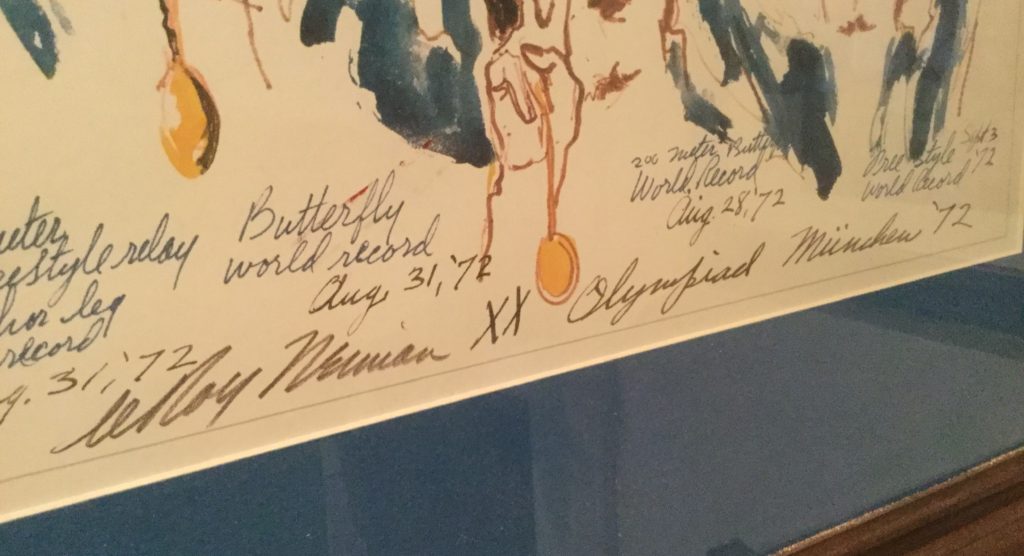 meter
freestyle relay
anchor leg
record
Aug. 31, '72
Butterfly
world record
Aug. 31, '72
200 meter Butterfly
World Record
Aug. 28, '72
Free style Sept 3
world record '72
LeRoy Neiman XX Olympiad München '72